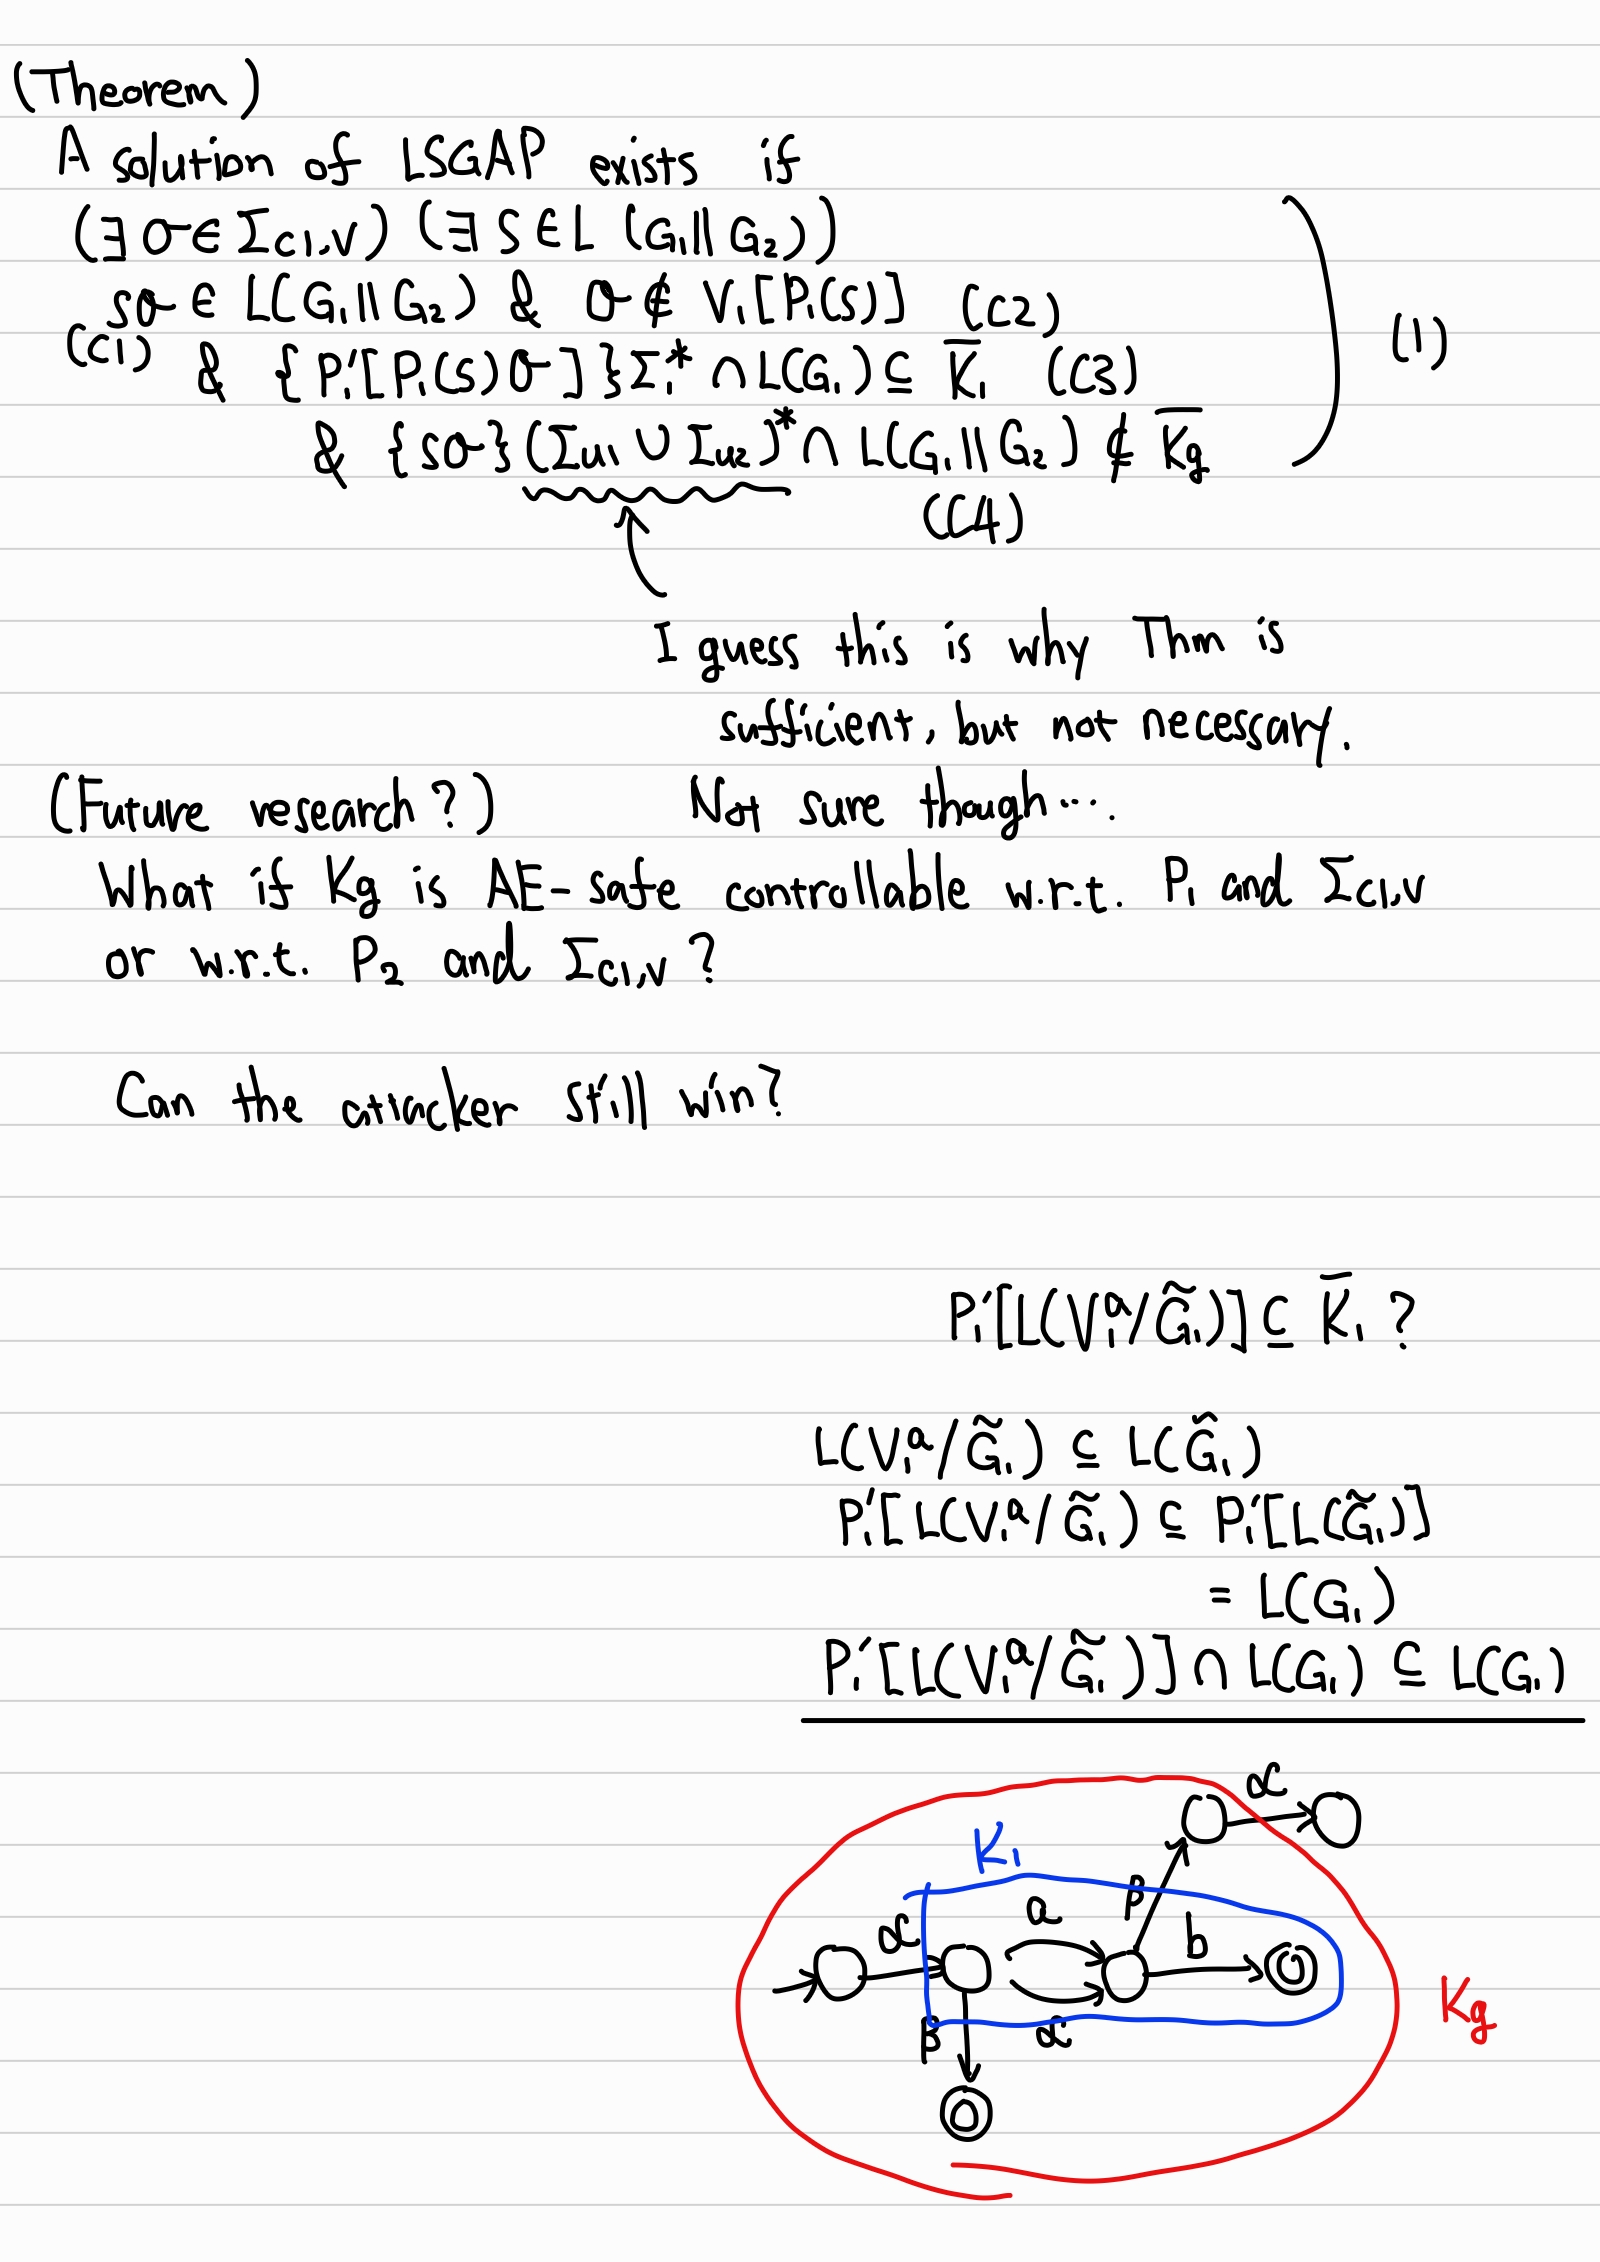 (Theorem)
A solution of LSGAP exists if
(∃σ∈Σc1,v) (∃s∈L (G₁||G₂))
sσ ∈ L(G₁||G₂) & σ ∉ V₁[P₁(s)] (C2)
(C1) & {P₁'[P₁(s)σ]}Σ₁* ∩ L(G₁) ⊆ K̅₁ (C3)
(1)
& {sσ}(Σu₁ ∪ Σu₂)* ∩ L(G₁||G₂) ⊄ K̅g
(C4)
I guess this is why Thm is
sufficient, but not necessary.
(Future research?) Not sure though...
What if Kg is AE-safe controllable w.r.t. P₁ and Σc1,v
or w.r.t. P₂ and Σc1,v?
Can the attacker still win?
P₁'[L(V₁ᵃ/G̃₁)] ⊆ K̅₁?
L(V₁ᵃ/G̃₁) ⊆ L(G̃₁)
P₁'[L(V₁ᵃ/G̃₁) ⊆ P₁'[L(G̃₁)]
= L(G₁)
P₁'[L(V₁ᵃ/G̃₁)] ∩ L(G₁) ⊆ L(G₁)
α
K₁
β
α a b
Kg
β α